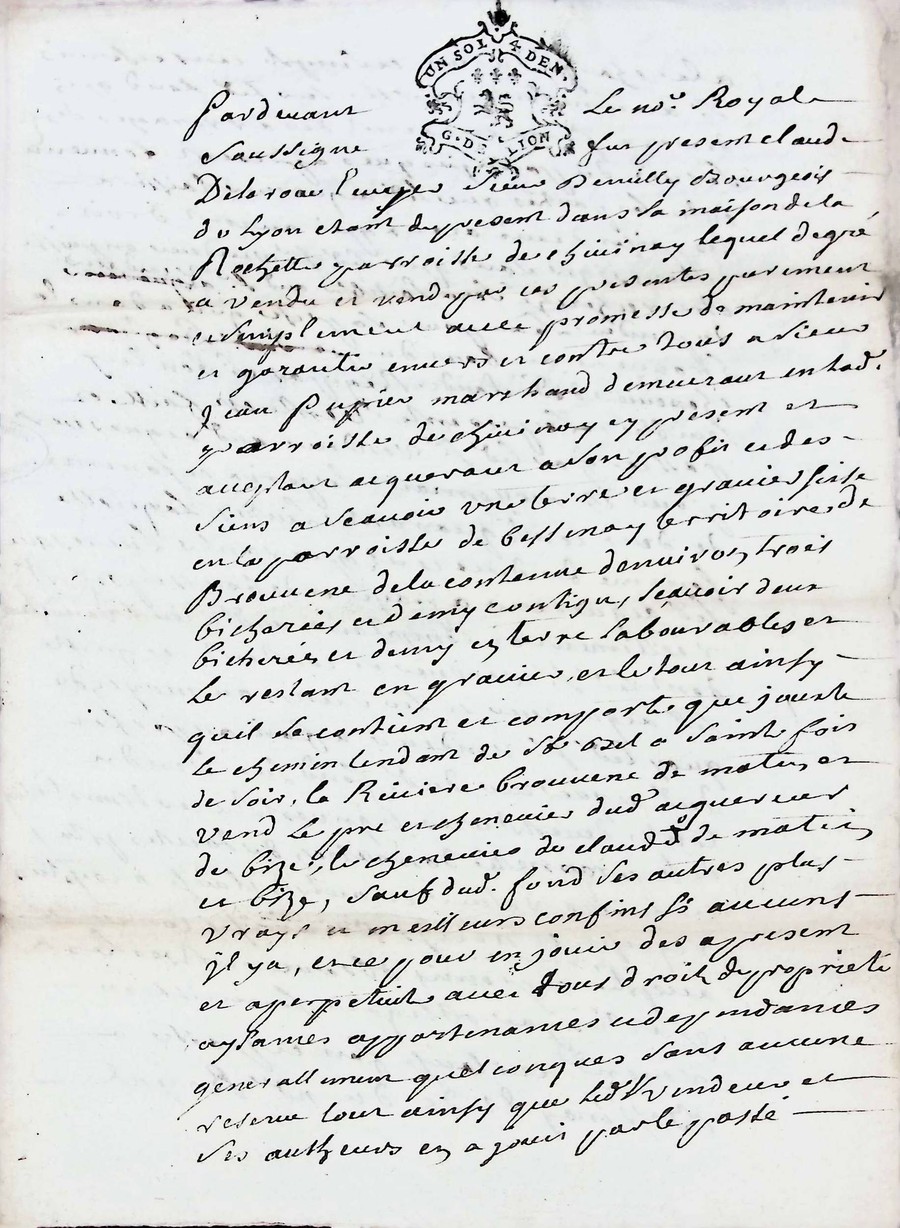 UN SOL 4 DEN.
G. DE LION
Pardevant Le no.e Royal
Soussigne fut present claude
Delaroue Ecuyer Sieur Bourgeois
de Lyon etant de present dans la maison de la
Rochette parroisse de chivinay lequel de gré
a vendu et vend par ces presentes purement
et simplement avec promesse de maintenir
et garantir envers et contre tous a Sieur
Jean marchand demeurant en lad.
parroisse de chivinay ey present et
acceptant acquerant a son profit et des
siens a scavoir une terre et gravier sise
en la parroisse de bessenay territoire de
Brouvene de la contenue denviron trois
bicherées et demy contigu, scavoir deux
bicherées et demy en terre labourables et
Le restant en gravier, et le tout ainsy
quil se contient et comporte que jouste
Le chemin tendant de St bel a Saint fois
de soir, la Riviere brouvene de matin, et
vend Le pré et chenevier dud acquereur
de bize, le chenevier de claude de matin
et bize, sauf dud. fond ses autres plus
vrays et meilleurs confins si aucuns
il y a, et ce pour en jouir des apresent
et a perpetuité avec tous droits de proprieté
aysances appartenances et dependances
generallement quelconques sans aucune
reserve tout ainsy que led Vendeur et
Ses autheurs en a jouis par le passé